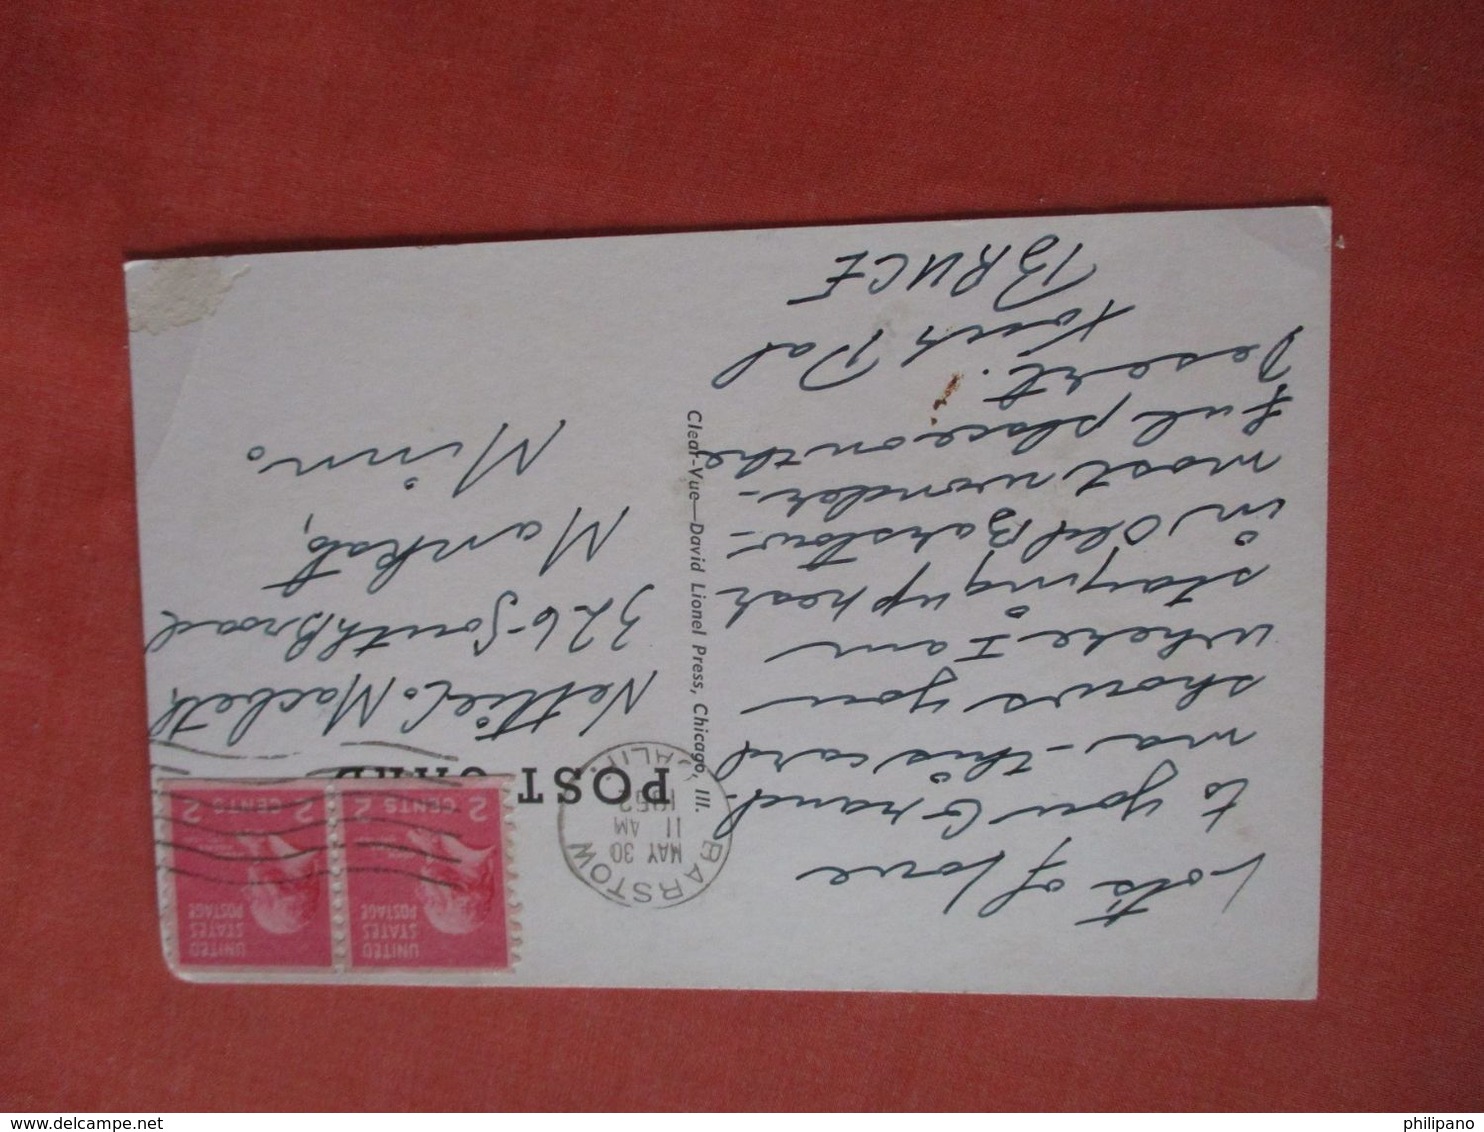 Lots of love
to you Grand-
ma - this card
shows you
where I am
staying up hear
in Old Barstow -
most wonder-
ful place on the
Desert.
Your Pal
BRUCE
Clear-Vue—David Lionel Press, Chicago, Ill.
POST CARD
BARSTOW
MAY 30
11 AM
1952
CALIF.
UNITED STATES POSTAGE
2 CENTS 2
UNITED STATES POSTAGE
2 CENTS 2
Macbeth
326 South Broad
Mankato,
Minn.
philipano
delcampe.net